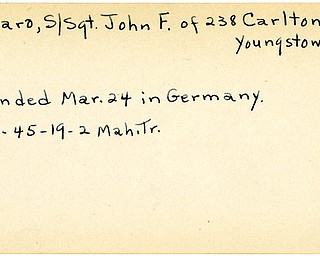 aro, S/Sgt. John F. of 238 Carlton
Youngstow
nded Mar. 24 in Germany.
- 45-19-2 Mah. Tr.